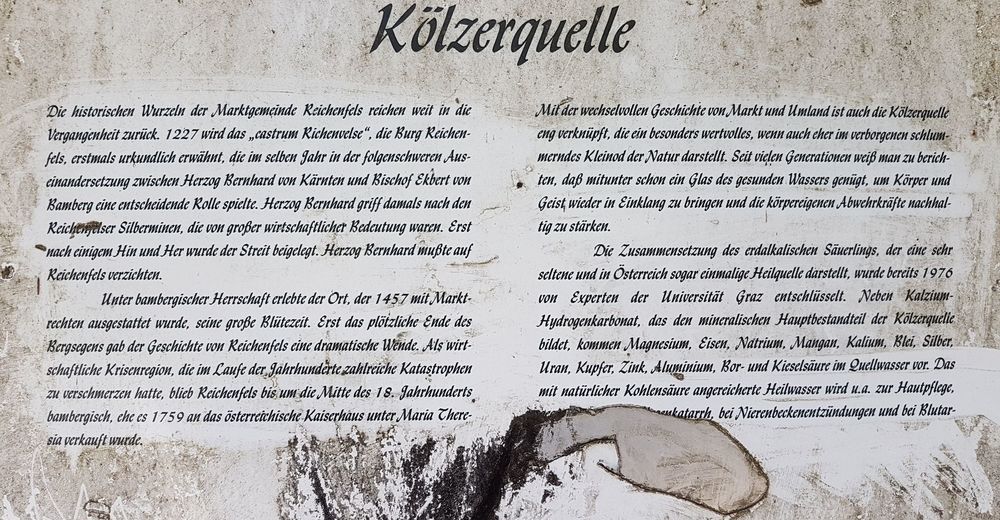 Kölzerquelle
Die historischen Wurzeln der Marktgemeinde Reichenfels reichen weit in die
Vergangenheit zurück. 1227 wird das „castrum Richenvelse“, die Burg Reichen-
fels, erstmals urkundlich erwähnt, die im selben Jahr in der folgenschweren Aus-
einandersetzung zwischen Herzog Bernhard von Kärnten und Bischof Ekbert von
Bamberg eine entscheidende Rolle spielte. Herzog Bernhard griff damals nach den
Reichenfelser Silberminen, die von großer wirtschaftlicher Bedeutung waren. Erst
nach einigem Hin und Her wurde der Streit beigelegt. Herzog Bernhard mußte auf
Reichenfels verzichten.
Unter bambergischer Herrschaft erlebte der Ort, der 1457 mit Markt-
rechten ausgestattet wurde, seine große Blütezeit. Erst das plötzliche Ende des
Bergsegens gab der Geschichte von Reichenfels eine dramatische Wende. Als wirt-
schaftliche Krisenregion, die im Laufe der Jahrhunderte zahlreiche Katastrophen
zu verschmerzen hatte, blieb Reichenfels bis um die Mitte des 18. Jahrhunderts
bambergisch, ehe es 1759 an das österreichische Kaiserhaus unter Maria There-
sia verkauft wurde.
Mit der wechselvollen Geschichte von Markt und Umland ist auch die Kölzerquelle
eng verknüpft, die ein besonders wertvolles, wenn auch eher im verborgenen schlum-
merndes Kleinod der Natur darstellt. Seit vielen Generationen weiß man zu berich-
ten, daß mitunter schon ein Glas des gesunden Wassers genügt, um Körper und
Geist wieder in Einklang zu bringen und die körpereigenen Abwehrkräfte nachhal-
tig zu stärken.
Die Zusammensetzung des erdalkalischen Säuerlings, der eine sehr
seltene und in Österreich sogar einmalige Heilquelle darstellt, wurde bereits 1976
von Experten der Universität Graz entschlüsselt. Neben Kalzium-
Hydrogenkarbonat, das den mineralischen Hauptbestandteil der Kölzerquelle
bildet, kommen Magnesium, Eisen, Natrium, Mangan, Kalium, Blei, Silber,
Uran, Kupfer, Zink, Aluminium, Bor- und Kieselsäure im Quellwasser vor. Das
mit natürlicher Kohlensäure angereicherte Heilwasser wird u.a. zur Hautpflege,
bei Nierenbeckenentzündungen und bei Blutar-